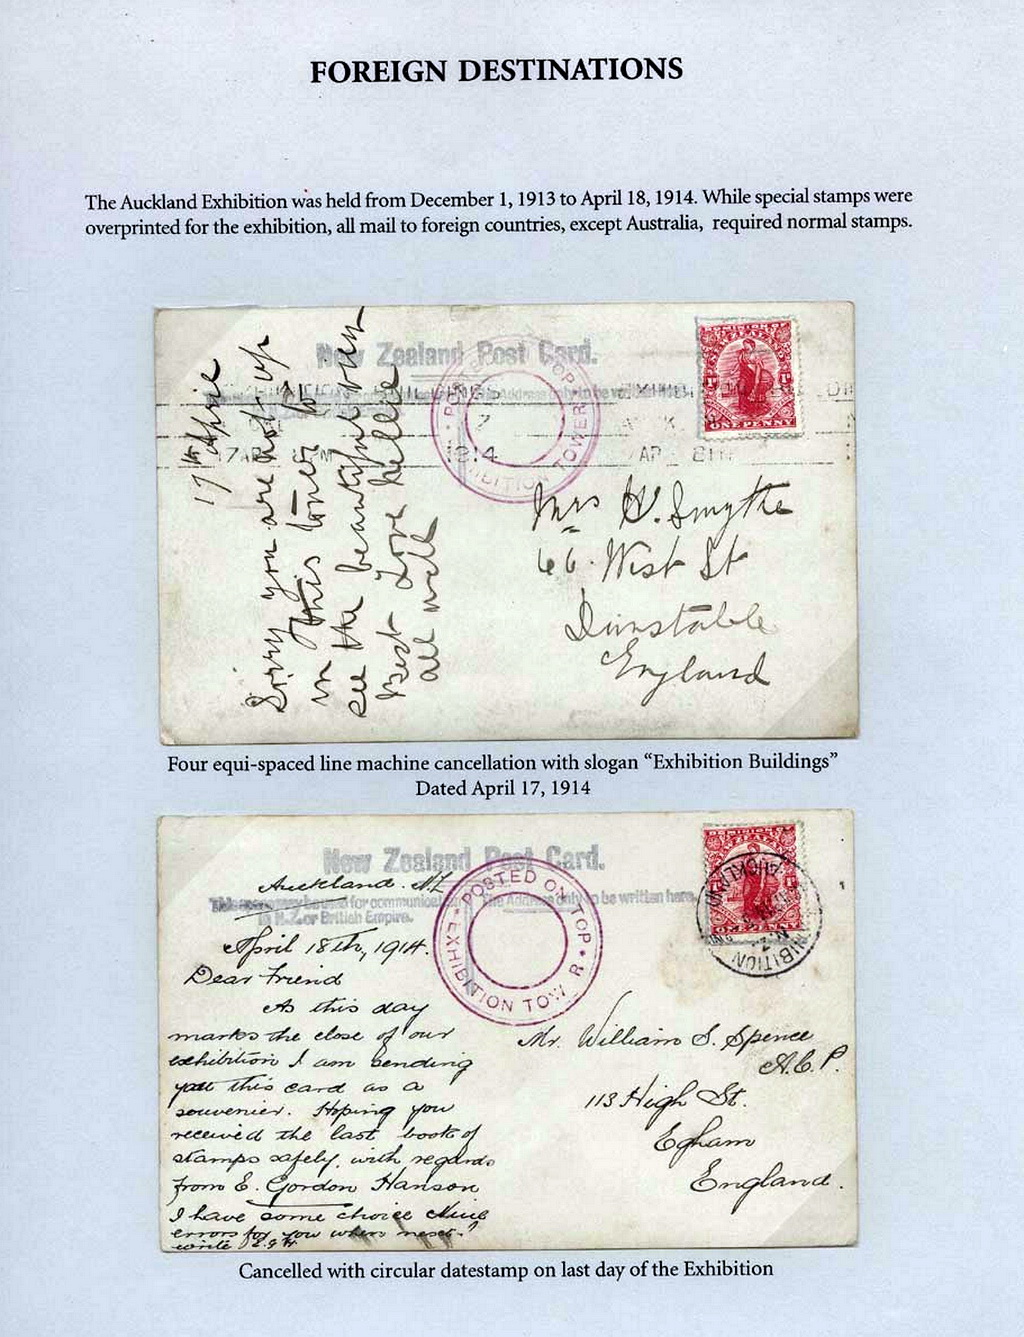 FOREIGN DESTINATIONS
The Auckland Exhibition was held from December 1, 1913 to April 18, 1914. While special stamps were
overprinted for the exhibition, all mail to foreign countries, except Australia, required normal stamps.
New Zealand Post Card.
DOMINION OF
NEW ZEALAND
ONE PENNY
1914
17th April
Sorry you are not up
in this tower to
see the beautiful view
Best Love
all well
Mrs H. Smythe
66. West St
Dunstable
England
Four equi-spaced line machine cancellation with slogan “Exhibition Buildings”
Dated April 17, 1914
New Zealand Post Card.
for communication The Address only to be written here.
to N.Z. or British Empire.
POSTED ON TOP
EXHIBITION TOW R
ONE PENNY
Auckland. NZ
April 18th, 1914.
Dear Friend
As this day
marks the close of our
exhibition I am sending
you this card as a
souvenier. Hoping you
received the last book of
stamps safely, with regards
from E. Gordon Hanson
I have some choice Niue
errors for you when next
write E.G.H
Mr. William S. Spence
A.C.P.
113 High St.
Egham
England.
Cancelled with circular datestamp on last day of the Exhibition